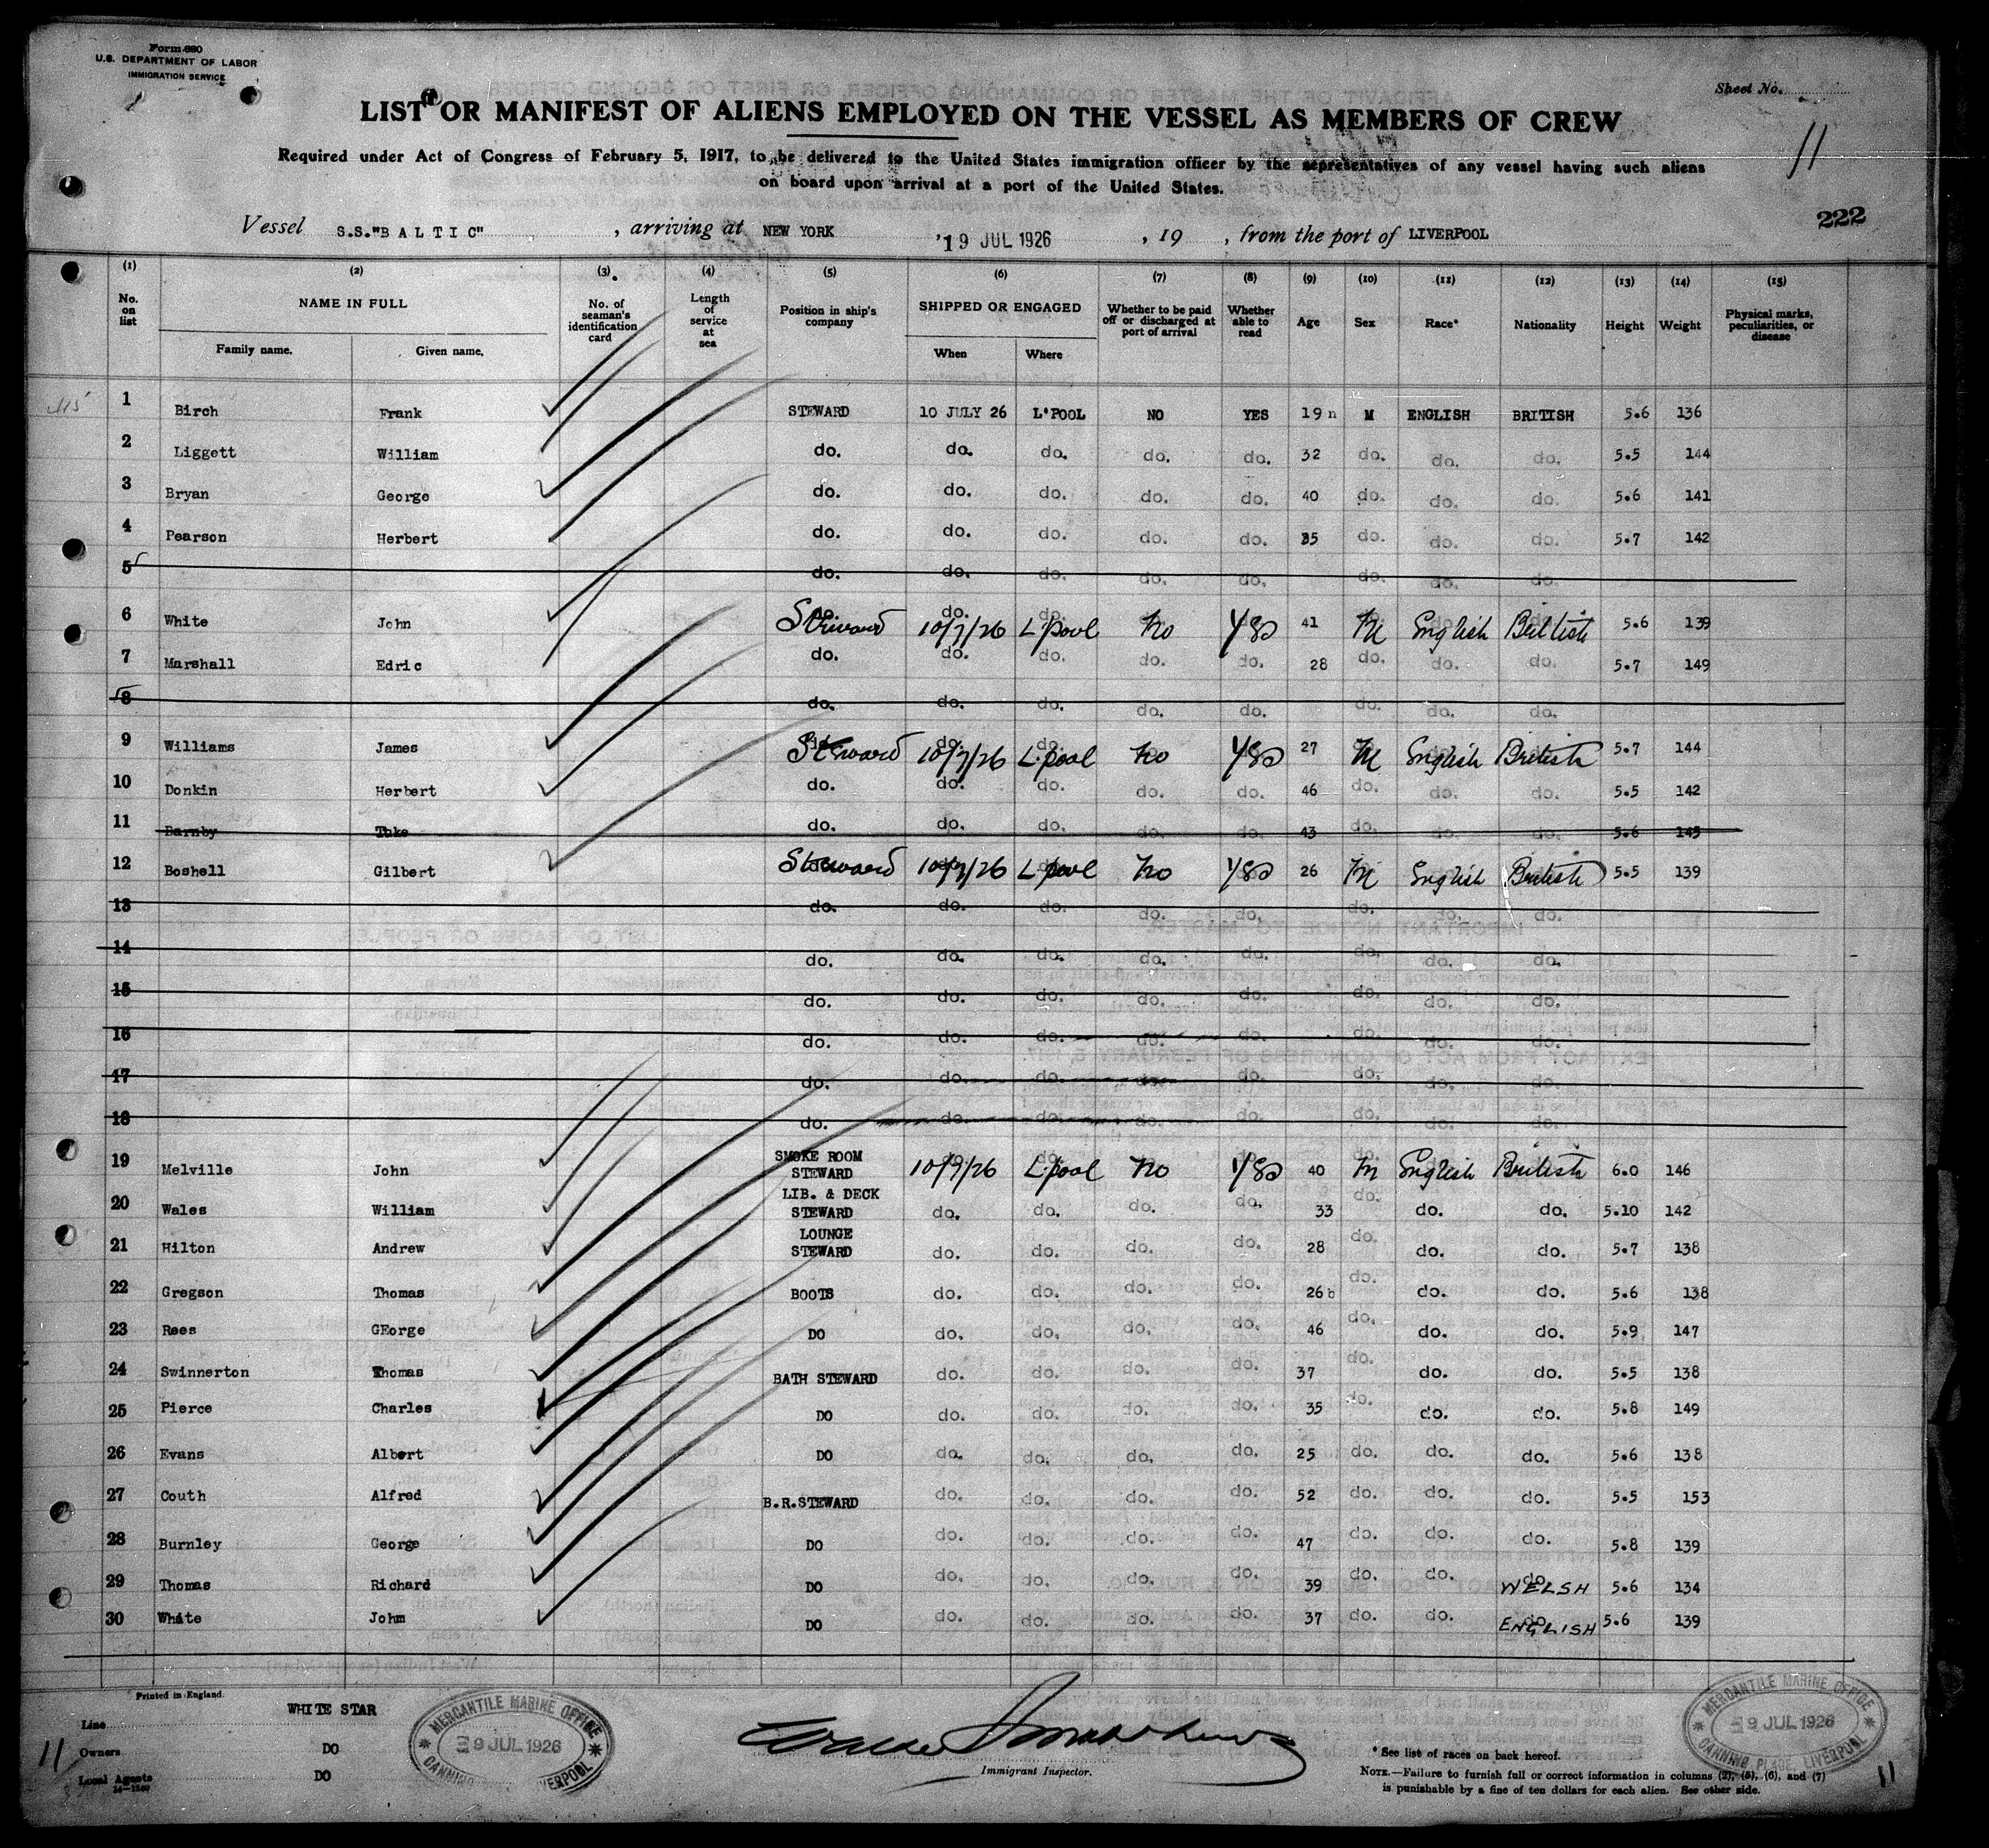 Form 680
U.S. DEPARTMENT OF LABOR
IMMIGRATION SERVICE
Sheet No.
LIST OR MANIFEST OF ALIENS EMPLOYED ON THE VESSEL AS MEMBERS OF CREW
11
Required under Act of Congress of February 5, 1917, to be delivered to the United States immigration officer by the representatives of any vessel having such aliens
on board upon arrival at a port of the United States.
222
Vessel S.S."BALTIC", arriving at NEW YORK 19 JUL 1926, 19 , from the port of LIVERPOOL
(1) (2) (3) (4) (5) (6) (7) (8) (9) (10) (11) (12) (13) (14) (15)
No. on list NAME IN FULL Family name. Given name. No. of seaman's identification card Length of service at sea Position in ship's company SHIPPED OR ENGAGED When Where Whether to be paid off or discharged at port of arrival Whether able to read Age Sex Race* Nationality Height Weight Physical marks, peculiarities, or disease
1 Birch Frank STEWARD 10 JULY 26 L'POOL NO YES 19 n M ENGLISH BRITISH 5.6 136
2 Liggett William do. do. do. do. do. 32 do. do. do. 5.5 144
3 Bryan George do. do. do. do. do. 40 do. do. do. 5.6 141
4 Pearson Herbert do. do. do. do. do. 35 do. do. do. 5.7 142
5 do. do. do. do. do. do. do. do.
6 White John Steward 10/7/26 L'pool No Yes 41 M English British 5.6 139
7 Marshall Edric do. do. do. do. do. 28 do. do. do. 5.7 149
8 do. do. do. do. do. do. do. do.
9 Williams James Steward 10/7/26 L'pool No Yes 27 M English British 5.7 144
10 Donkin Herbert do. do. do. do. do. 46 do. do. do. 5.5 142
11 Barnby Toke do. do. do. do. do. 43 do. do. do. 5.6 145
12 Boshell Gilbert Steward 10/7/26 L'pool No Yes 26 M English British 5.5 139
13 do. do. do. do. do. do. do. do.
14 do. do. do. do. do. do. do. do.
15 do. do. do. do. do. do. do. do.
16 do. do. do. do. do. do. do. do.
17 do. do. do. do. do. do. do. do.
18 do. do. do. do. do. do. do. do.
19 Melville John SMOKE ROOM STEWARD 10/7/26 L'pool No Yes 40 M English British 6.0 146
20 Wales William LIB. & DECK STEWARD do. do. do. do. 33 do. do. do. 5.10 142
21 Hilton Andrew LOUNGE STEWARD do. do. do. do. 28 do. do. do. 5.7 138
22 Gregson Thomas BOOTS do. do. do. do. 26 b do. do. do. 5.6 138
23 Rees GEorge DO do. do. do. do. 46 do. do. do. 5.9 147
24 Swinnerton Thomas BATH STEWARD do. do. do. do. 37 do. do. do. 5.5 138
25 Pierce Charles DO do. do. do. do. 35 do. do. do. 5.8 149
26 Evans Albert DO do. do. do. do. 25 do. do. do. 5.6 138
27 Couth Alfred B.R.STEWARD do. do. do. do. 52 do. do. do. 5.5 153
28 Burnley George DO do. do. do. do. 47 do. do. do. 5.8 139
29 Thomas Richard DO do. do. do. do. 39 do. do. do. WELSH 5.6 134
30 White John DO do. do. do. do. 37 do. do. do. ENGLISH 5.6 139
Printed in England.
Line WHITE STAR
Owners DO
Local Agents DO
14-1240
11
MERCANTILE MARINE OFFICE 9 JUL 1926 CANNING LIVERPOOL
Immigrant Inspector.
MERCANTILE MARINE OFFICE 9 JUL 1926 CANNING PLACE, LIVERPOOL
* See list of races on back hereof.
NOTE.—Failure to furnish full or correct information in columns (2), (5), (6), and (7)
is punishable by a fine of ten dollars for each alien. See other side.
11